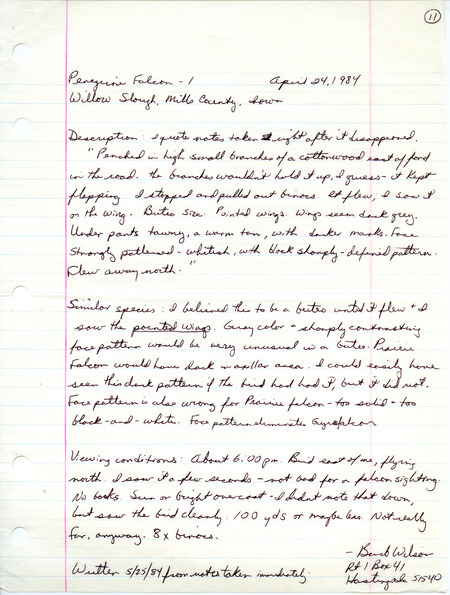 11
Peregrine Falcon - 1 April 24, 1984
Willow Slough, Mills County, Iowa
Description: I quote notes taken right after it disappeared.
"Perched in high small branches of a cottonwood east of ford
in the road. The branches wouldn't hold it up, I guess - it kept
flapping. I stopped and pulled out binocs. It flew, I saw it
on the wing. Buteo size. Pointed wings. Wings seem dark grey.
Under parts tawney, a warm tan, with darker marks. Face
strongly patterned - whitish, with black sharply-defined pattern.
Flew away north."
Similar species: I believed this to be a buteo until it flew + I
saw the pointed wings. Gray color + sharply contrasting
face pattern would be very unusual in a buteo. Prairie
Falcon would have dark in axillar area. I could easily have
seen this dark pattern if the bird had had it, but it did not.
Face pattern is also wrong for Prairie falcon - too solid + too
black-and-white. Face pattern eliminates Gyrfalcon
Viewing conditions: About 6:00 pm. Bird east of me, flying
north. I saw it a few seconds - not bad for a falcon sighting.
No books. Sun or bright overcast - I didn't note that down,
but saw the bird clearly. 100 yds or maybe less. Not really
far, anyway. 8x binocs.
- Barb Wilson
Rt 1 Box 41
Written 5/25/84 from notes taken immediately. Hastings, Ia 51540